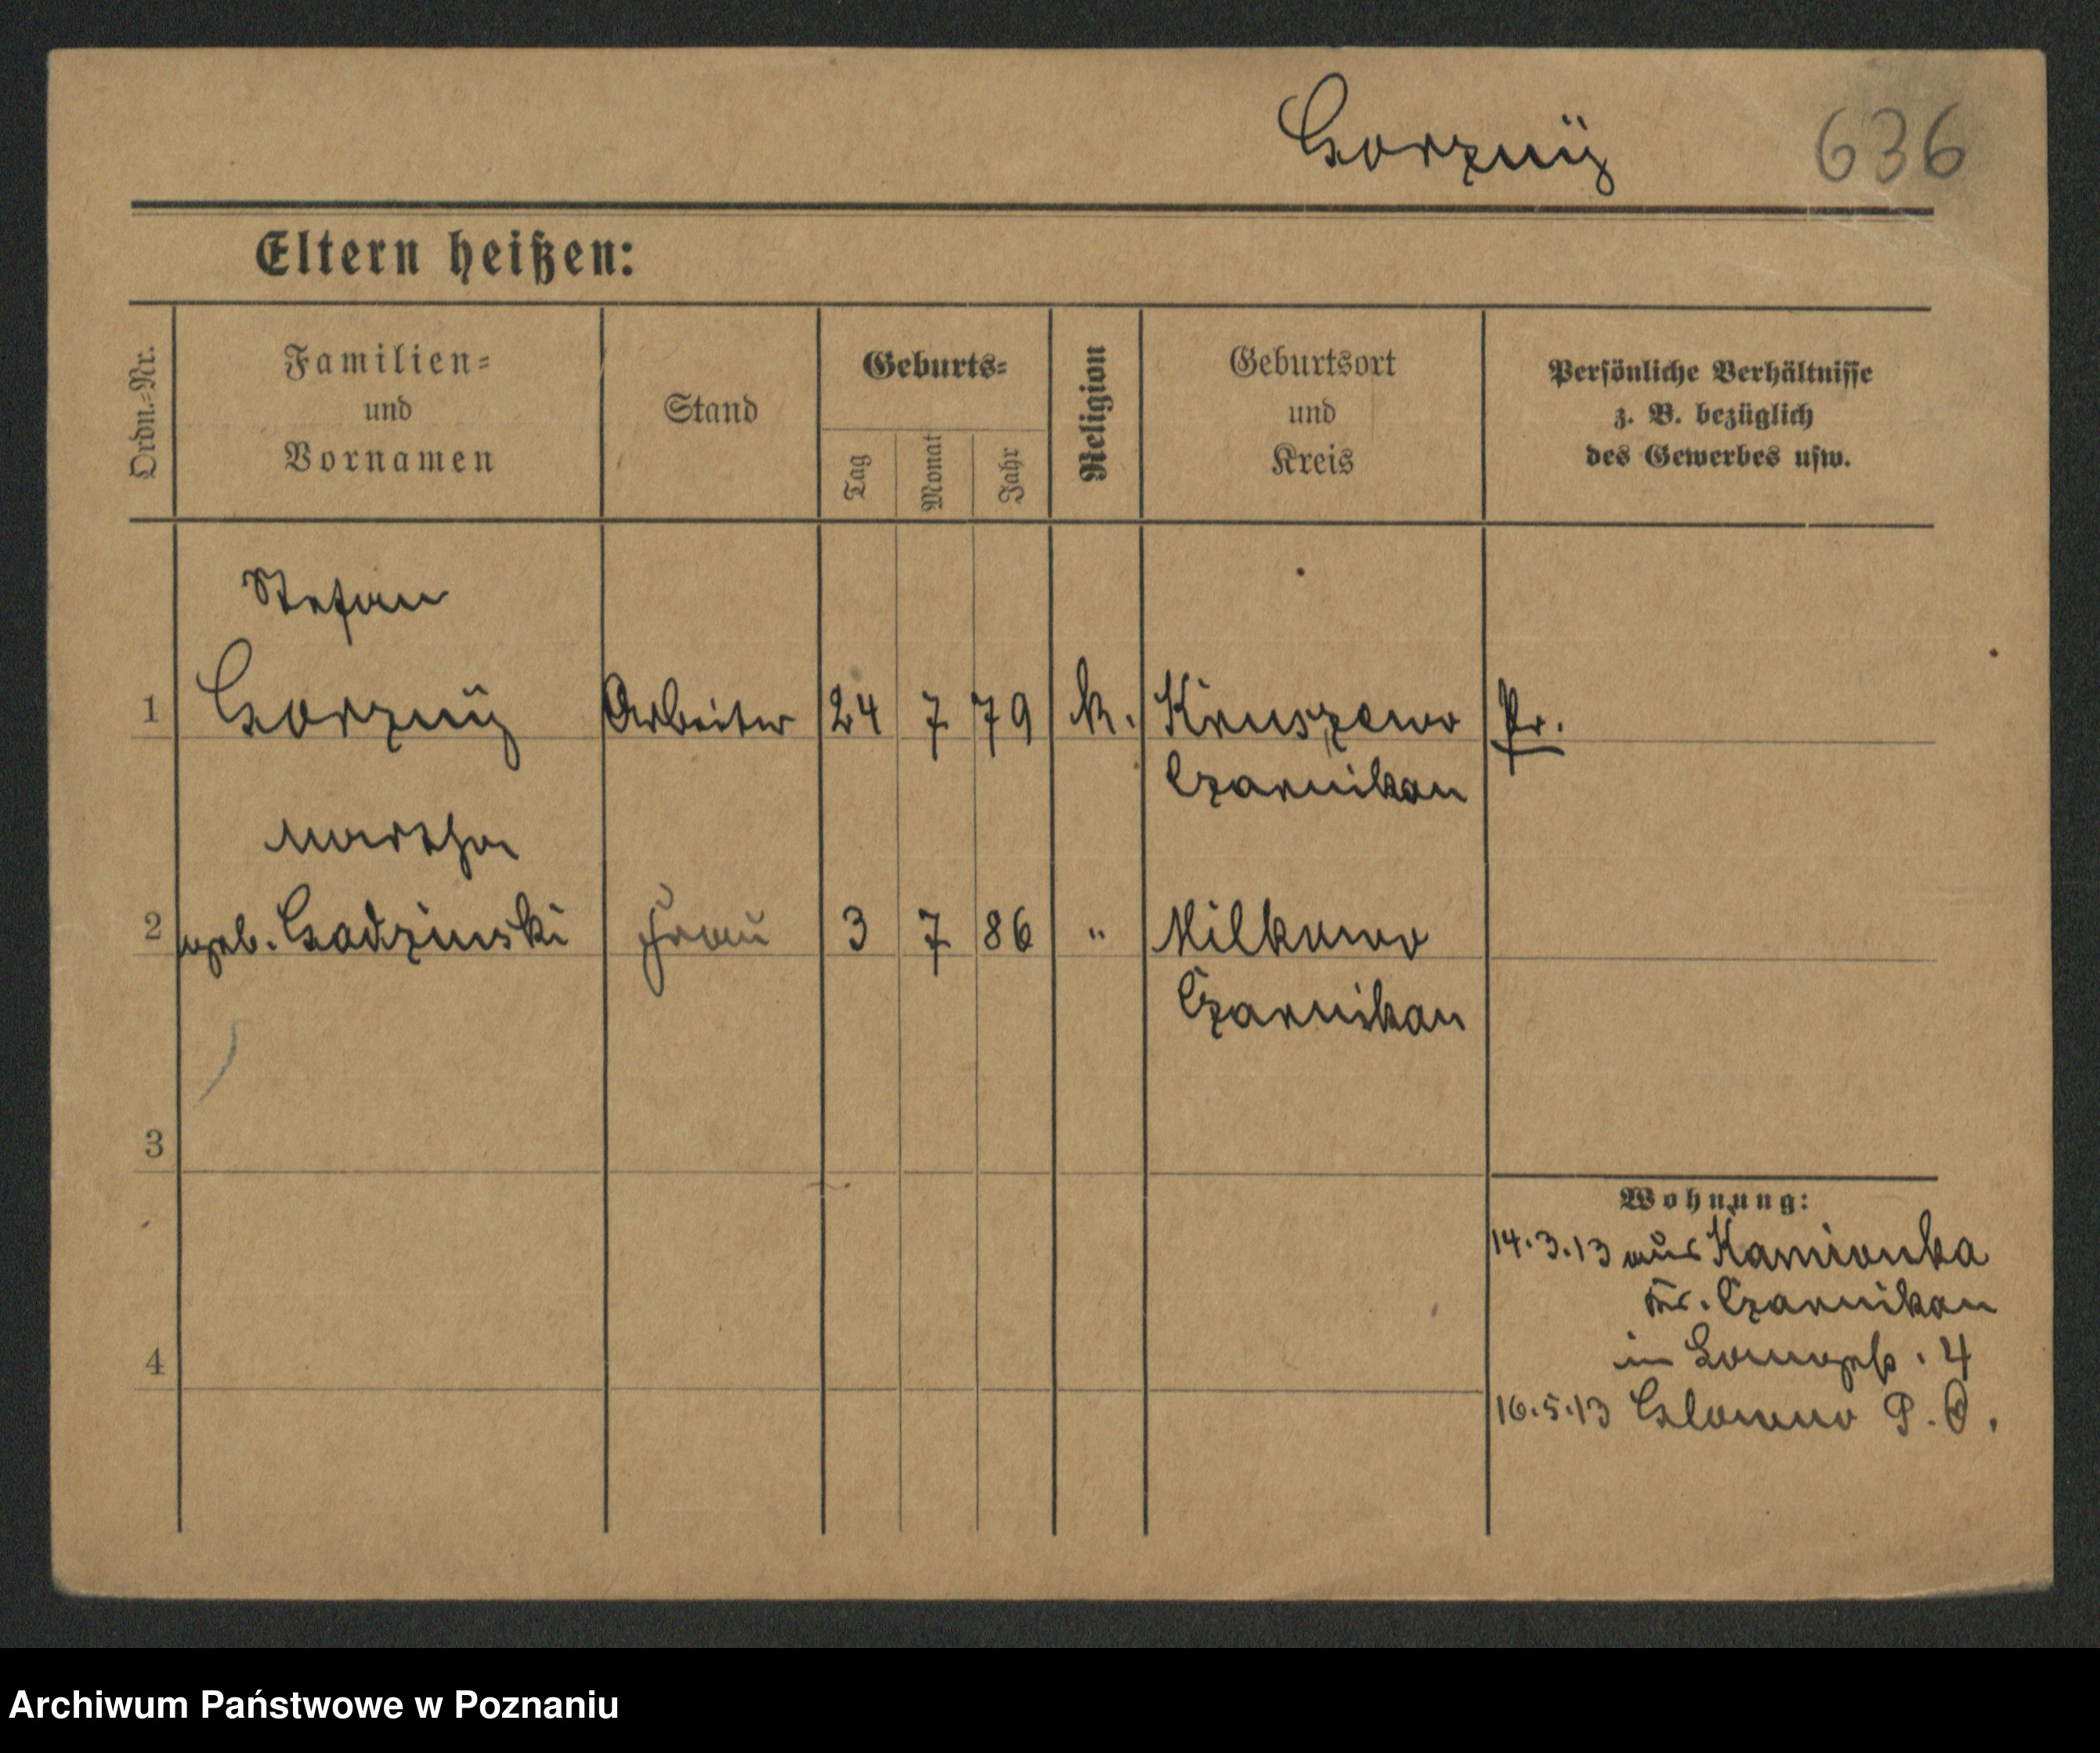 Gorzny 636
Eltern heißen:
Ordn.-Nr. Familien- und Vornamen Stand Geburts- Tag Monat Jahr Religion Geburtsort und Kreis Persönliche Verhältnisse z. B. bezüglich des Gewerbes usw.
Stefan
1 Gorzny Arbeiter 24 7 79 k. Kruszewo Pr.
Czarnikau
Martha
2 geb. Gadzinski Frau 3 7 86 " Milkowo
Czarnikau
3
Wohnung:
14.3.13 aus Kamionka
Kr. Czarnikau
in 4
4
16.5.13 Glowno P. O.
Archiwum Państwowe w Poznaniu